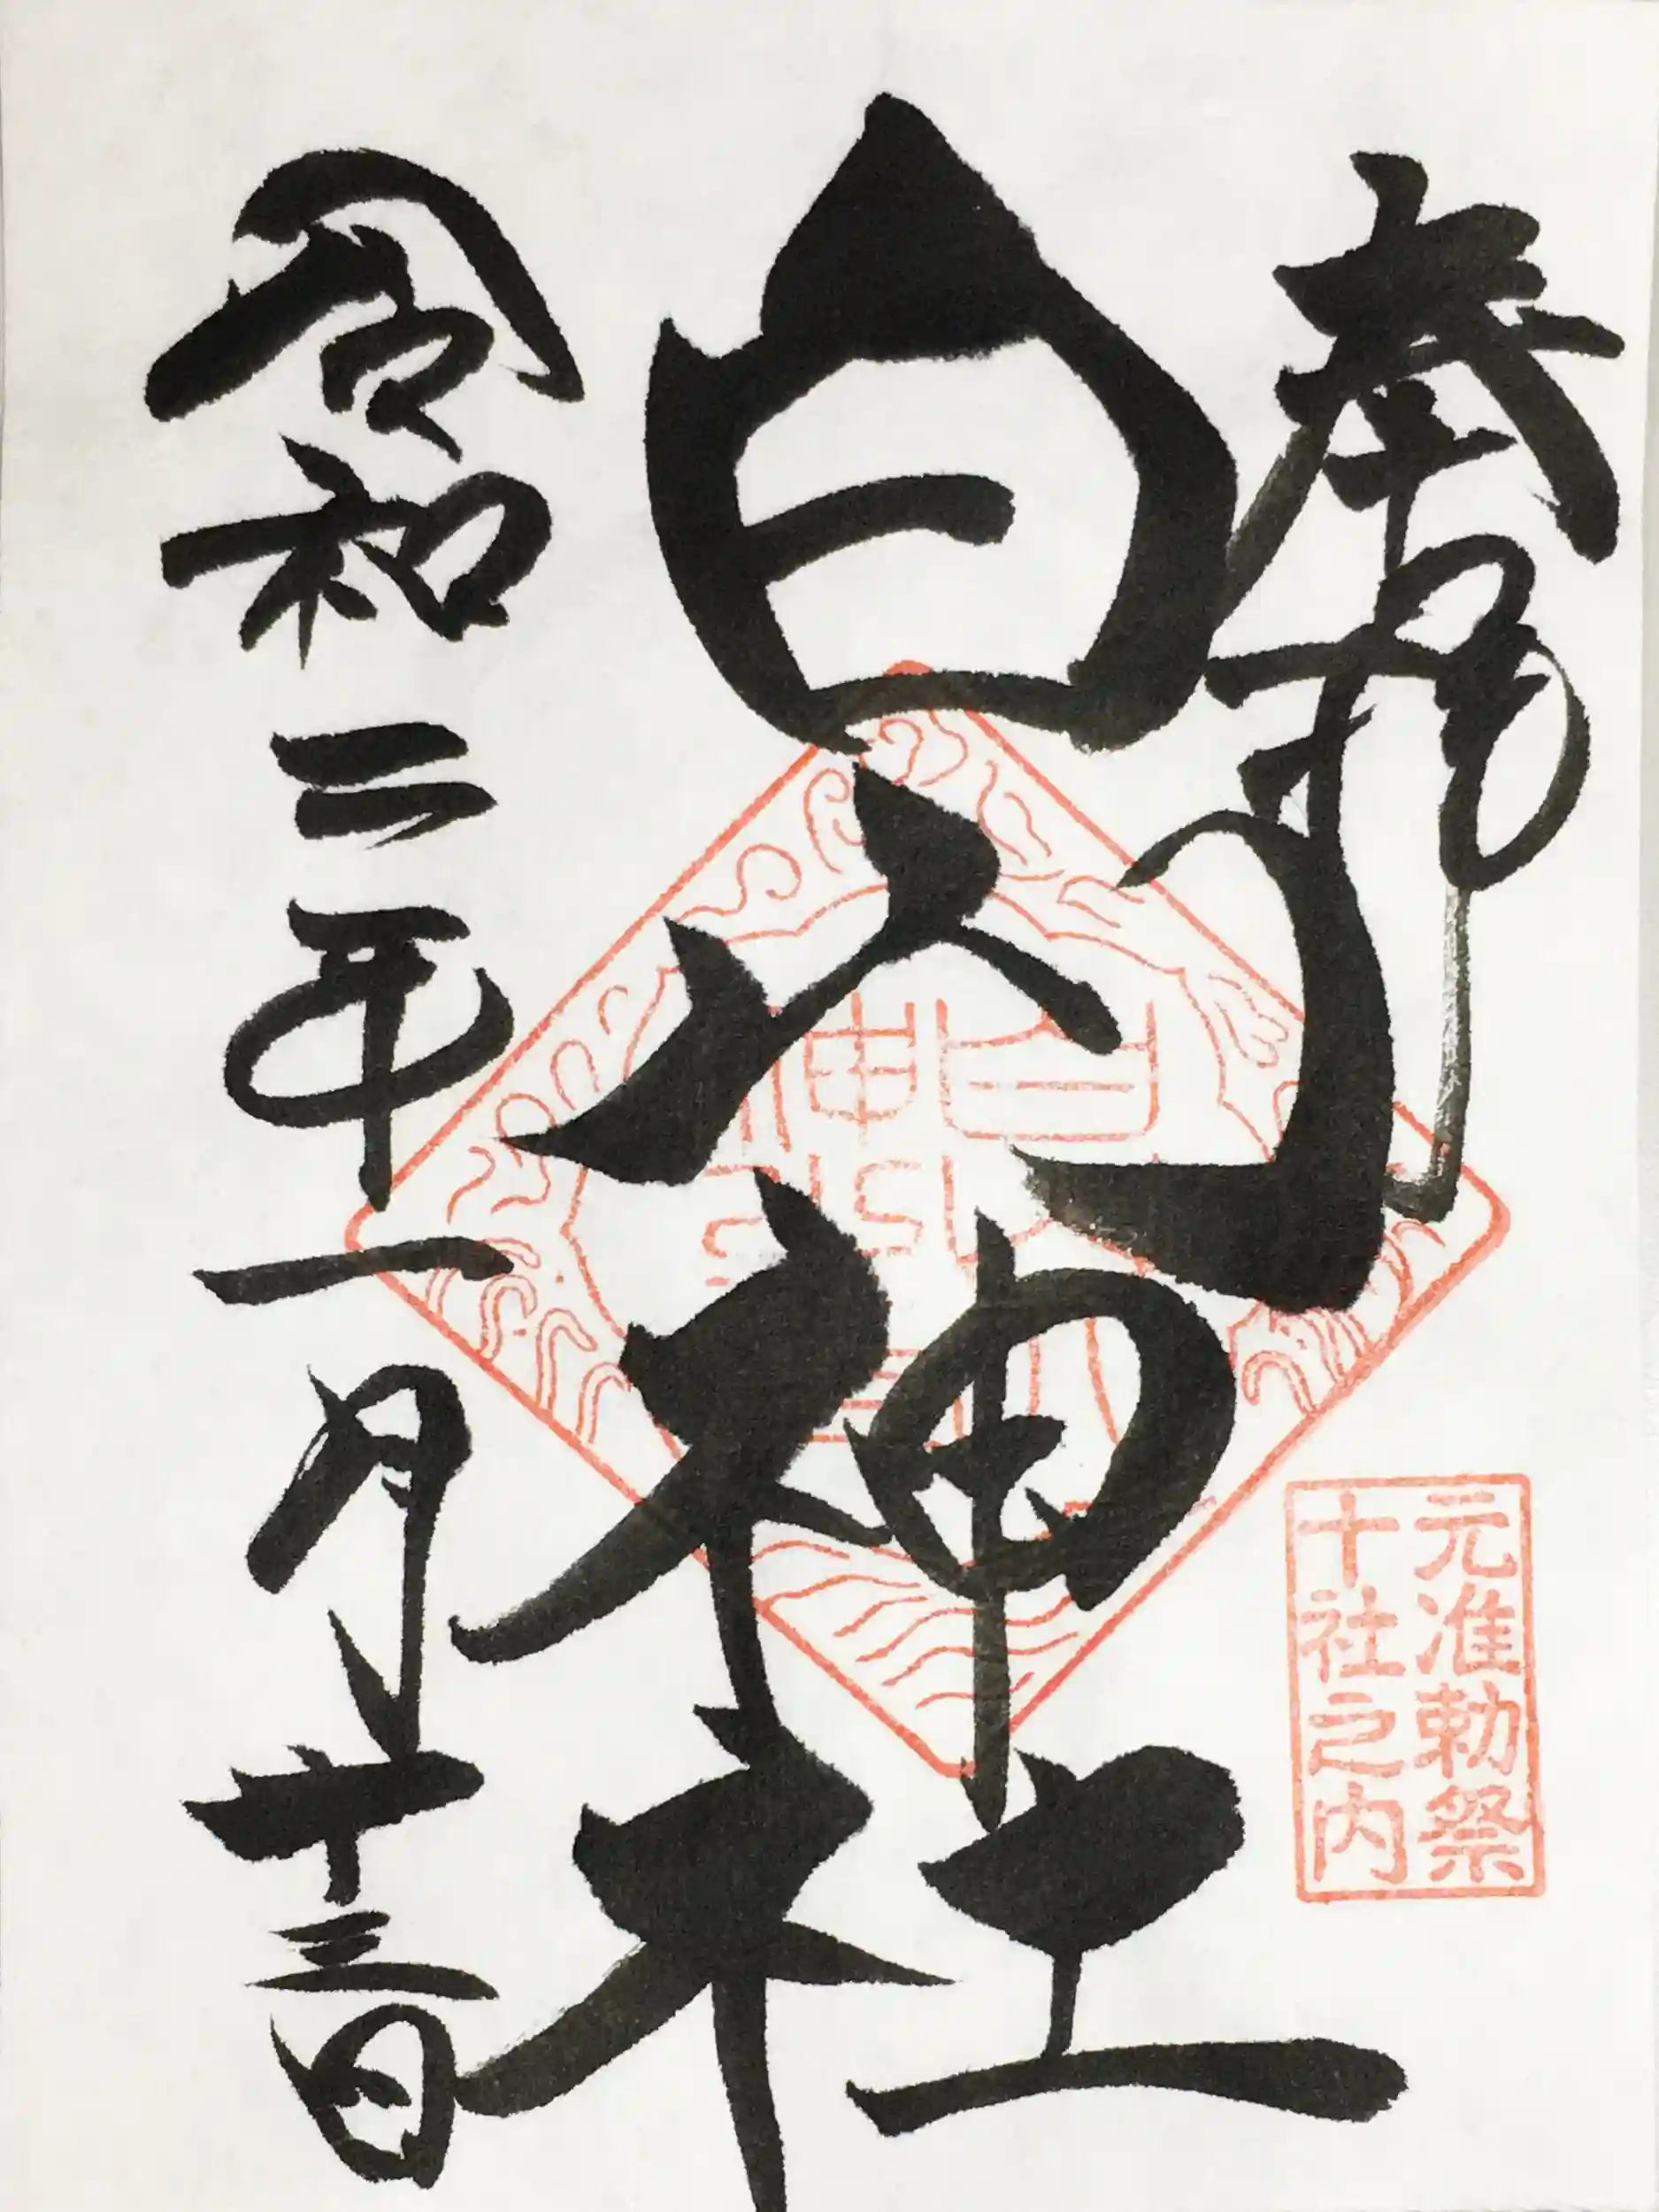 奉拝
白山神社
令和二年一月十三日
元准勅祭
十社之内